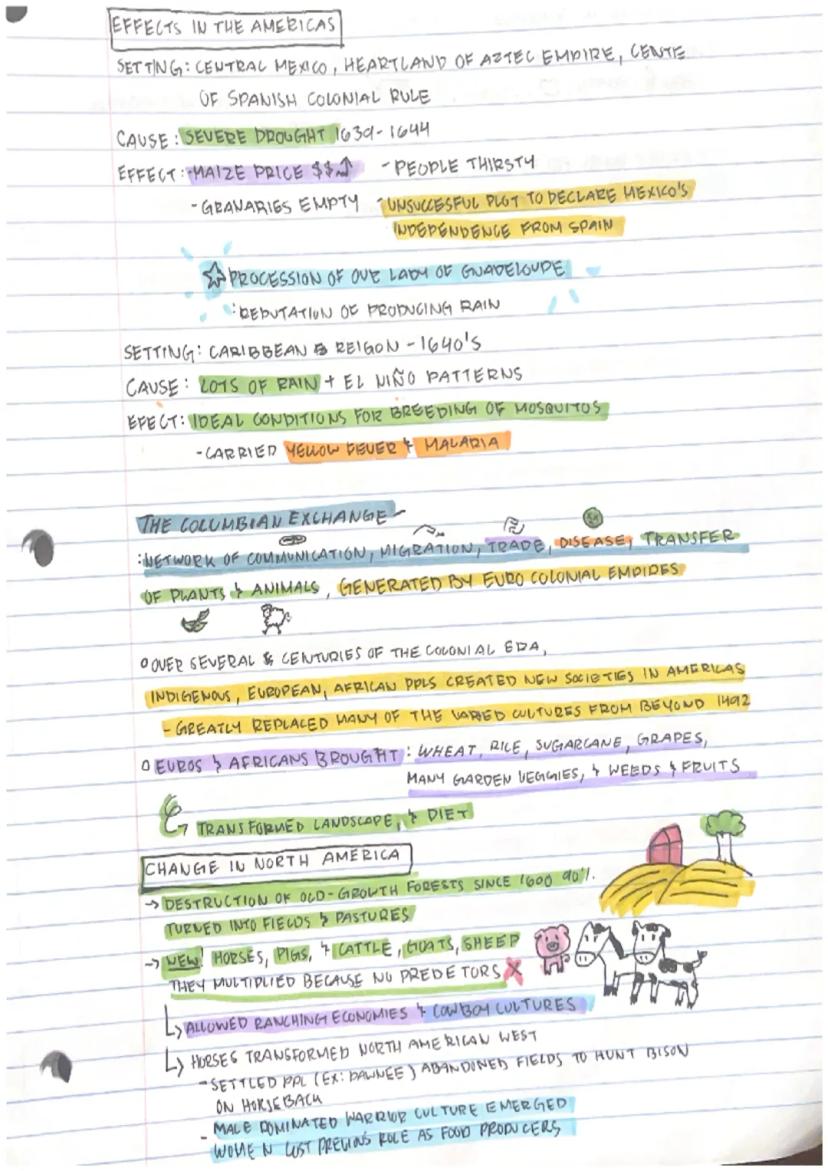 EFFECTS IN THE AMERICAS
SETTING: CENTRAL MEXICO, HEARTLAND OF AZTEC EMPIRE, CENTE
OF SPANISH COLONIAL RULE
CAUSE: SEVERE DROUGHT 1639-1644
EFFECT: -MAIZE PRICE $$↑ -PEOPLE THIRSTY
-GRANARIES EMPTY -UNSUCCESSFUL PLOT TO DECLARE MEXICO'S
INDEPENDENCE FROM SPAIN
☆ PROCESSION OF OUR LADY OF GUADELOUPE
: REPUTATION OF PRODUCING RAIN
SETTING: CARIBBEAN REIGON - 1640'S
CAUSE: LOTS OF RAIN + EL NIÑO PATTERNS
EFECT: IDEAL CONDITIONS FOR BREEDING OF MOSQUITOS
-CARRIED YELLOW FEVER & MALARIA
THE COLUMBIAN EXCHANGE
:NETWORK OF COMMUNICATION, MIGRATION, TRADE, DISEASE, TRANSFER
OF PLANTS & ANIMALS, GENERATED BY EURO COLONIAL EMPIRES
OVER SEVERAL CENTURIES OF THE COLONIAL ERA,
INDIGENOUS, EUROPEAN, AFRICAN PPLS CREATED NEW SOCIETIES IN AMERICAS
- GREATLY REPLACED MANY OF THE VARIED CULTURES FROM BEYOND 1492
EUROS & AFRICANS BROUGHT: WHEAT, RICE, SUGARCANE, GRAPES,
MANY GARDEN VEGGIES, & WEEDS & FRUITS
→ TRANSFORMED LANDSCAPE, & DIET
CHANGE IN NORTH AMERICA
→ DESTRUCTION OF OLD-GROWTH FORESTS SINCE 1600 90%.
TURNED INTO FIELDS & PASTURES
→ NEW! HORSES, PIGS, & CATTLE, GOATS, SHEEP
THEY MULTIPLIED BECAUSE NO PREDETORS X
↳ ALLOWED RANCHING ECONOMIES & COWBOY CULTURES
↳ HORSES TRANSFORMED NORTH AMERICAN WEST
-SETTLED PPL (EX: PAWNEE) ABANDONED FIELDS TO HUNT BISON
ON HORSEBACK
- MALE DOMINATED WARRIOR CULTURE EMERGED
- WOMEN LOST PREVIOUS ROLE AS FOOD PRODUCERS